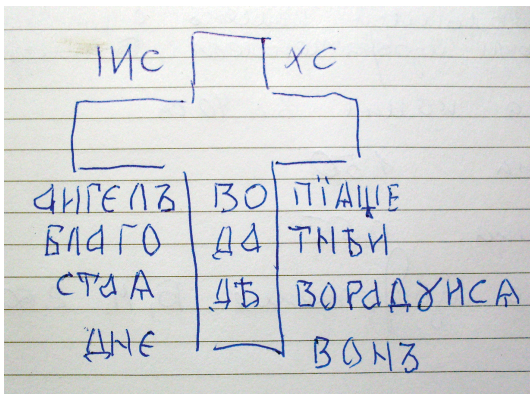 ІИС ХС
АНГЕЛЪ ВО ПЇАЩЕ
БЛАГО ДА ТНѢИ
СТАА ДѢ ВОРАДꙊИСА
ДНЕ ВОНЪ